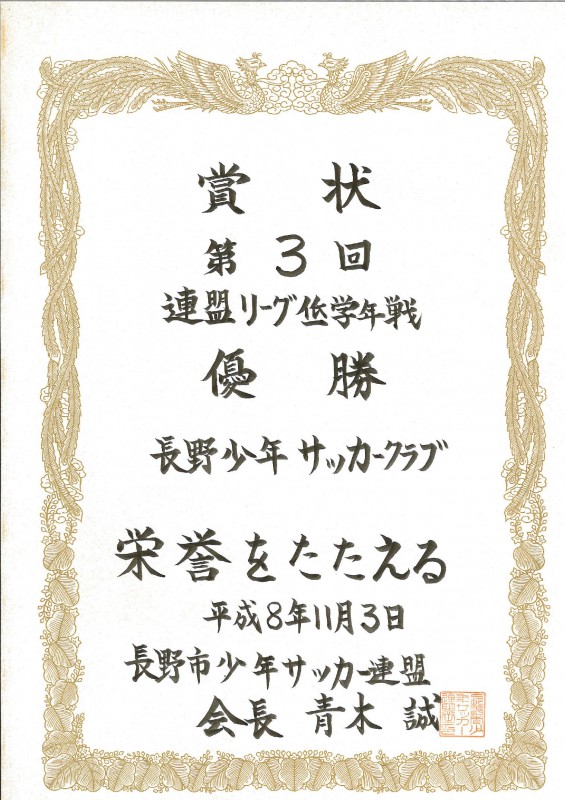 賞状
第3回
連盟リーグ低学年戦
優勝
長野少年サッカークラブ
栄誉をたたえる
平成8年11月3日
長野市少年サッカー連盟
会長 青木 誠